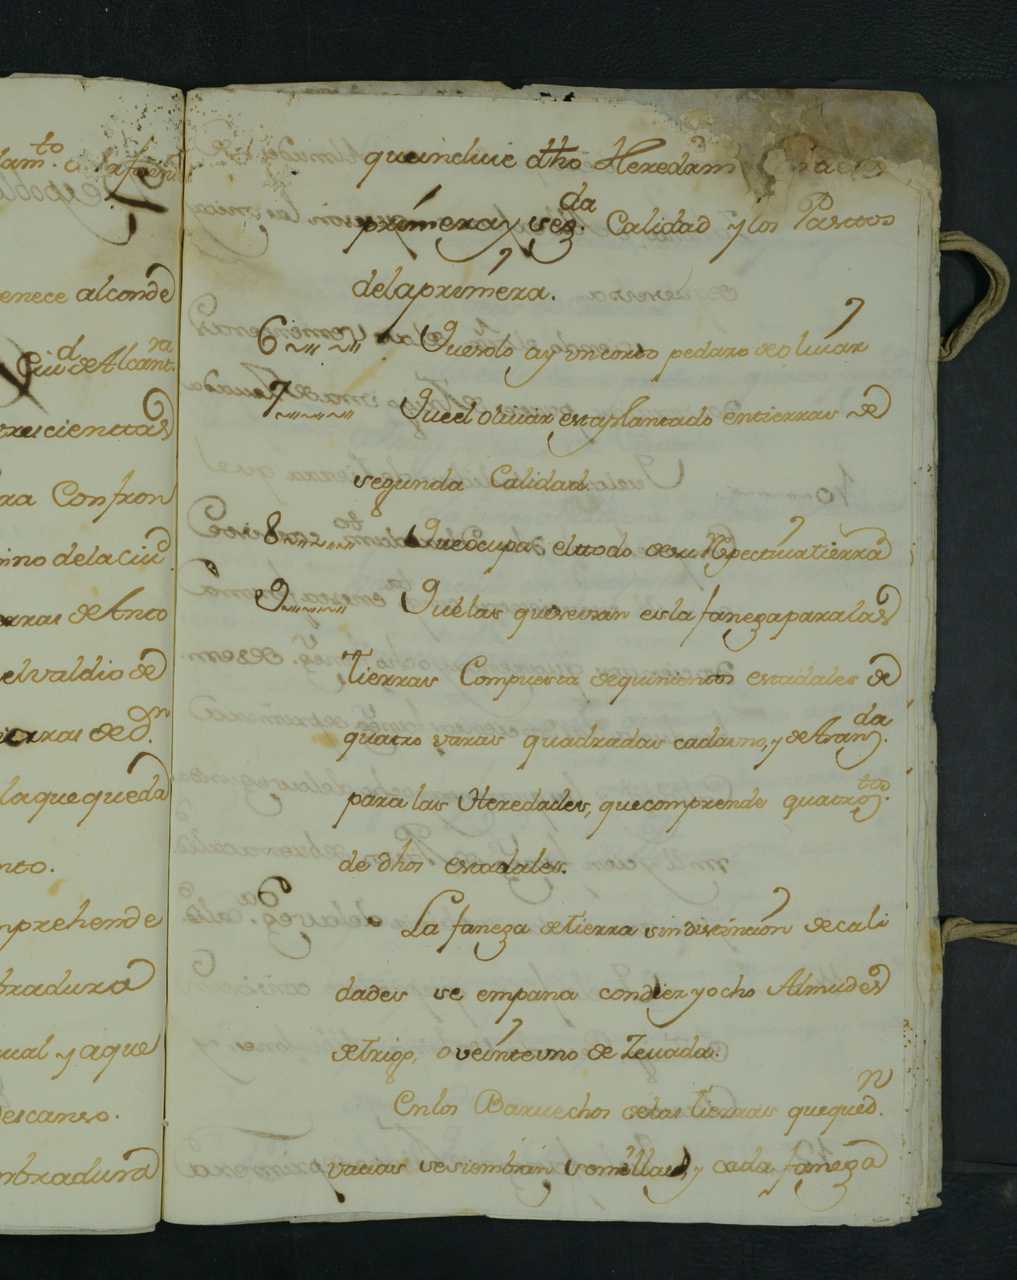 dam.to
enece al conde
Ciu.d de Alcant.ra
trescienttas
ra Confron
mino de la ciu.d
erras de Anto
el valdio de
tierras de D.n
la que queda
nto.
mprehende
bradura
qual y aque
descanso.
mbradura
que incluie dho Heredam
primera y seg.da Calidad y los Pasttos
de la primera.
6 Que solo ay un corto pedazo de oluiar
7 Que el oliuar esta plantado en tierras de
segunda Calidad.
8 Que ocupa el ttodo de su Respectiua tierra
9 Que las que se usan es la fanega para las
tierras Compuesta de quinientos estadales de
quatro varas quadradas cada uno, y de Aranz.da
para las Heredades, que comprende quatroz.ttos
de dhos estadales.
La fanega de tierra sin distincion de cali
dades se empana con diez y ocho Almudes
de trigo, o veinte uno de Zeuada.
En los Baruechos de las tierras que qued.n
vacias se siembran semillas, y cada fanega